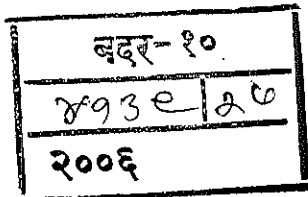 बदर-१०
४१३९|२७
२००६